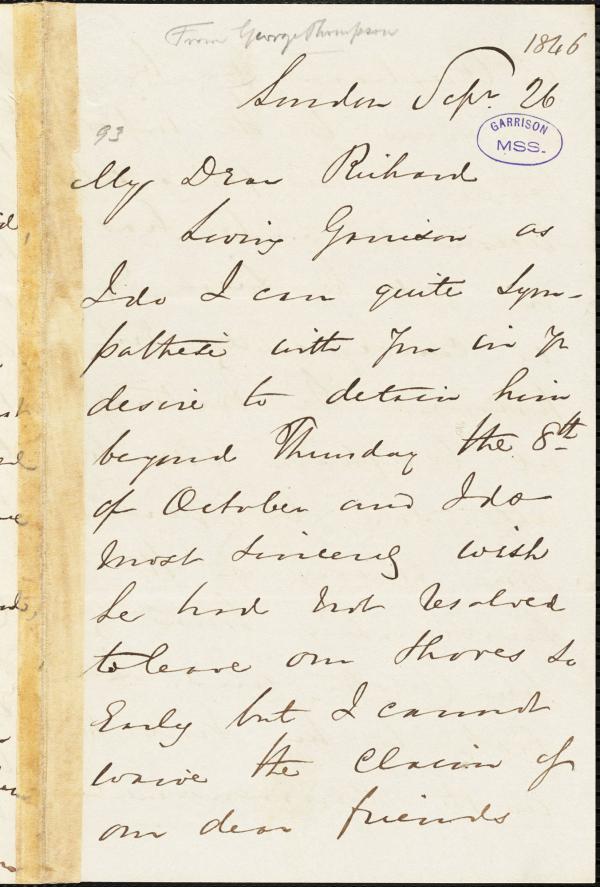 From George Thompson
1846
London Sepr. 26
93
GARRISON
MSS.
My Dear Richard
Loving Garrison as
I do I can quite sym-
pathese with you in yr
desire to detain him
beyond Thursday the 8th
of October and I do
most sincerely wish
he had not resolved
to leave our shores so
Early but I cannot
waive the Claim of
our dear friends